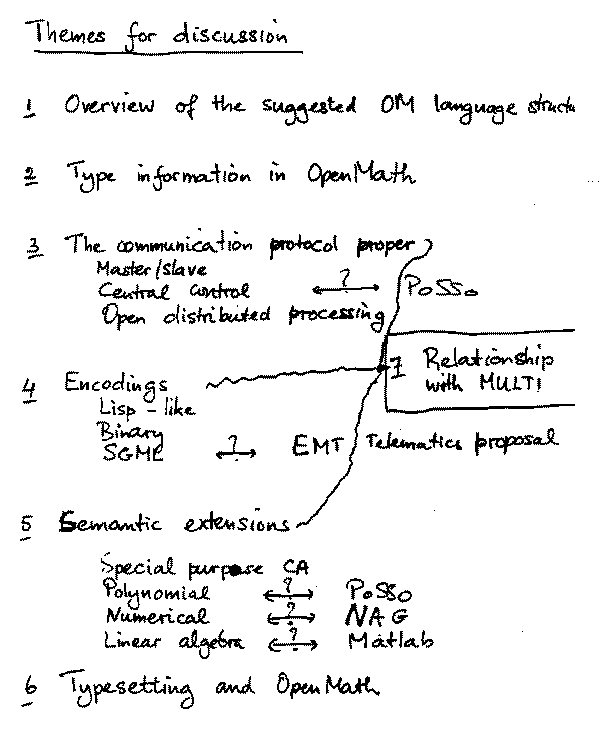 Themes for discussion
1 Overview of the suggested OM language structu
2 Type information in OpenMath
3 The communication protocol proper
Master/Slave
Central control ? PoSSo
Open distributed processing
7 Relationship
with MULTI
4 Encodings
Lisp - like
Binary
SGML ? EMT Telematics proposal
5 Semantic extensions
Special purpose CA
Polynomial ? PoSSo
Numerical ? NAG
Linear algebra ? Matlab
6 Typesetting and OpenMath